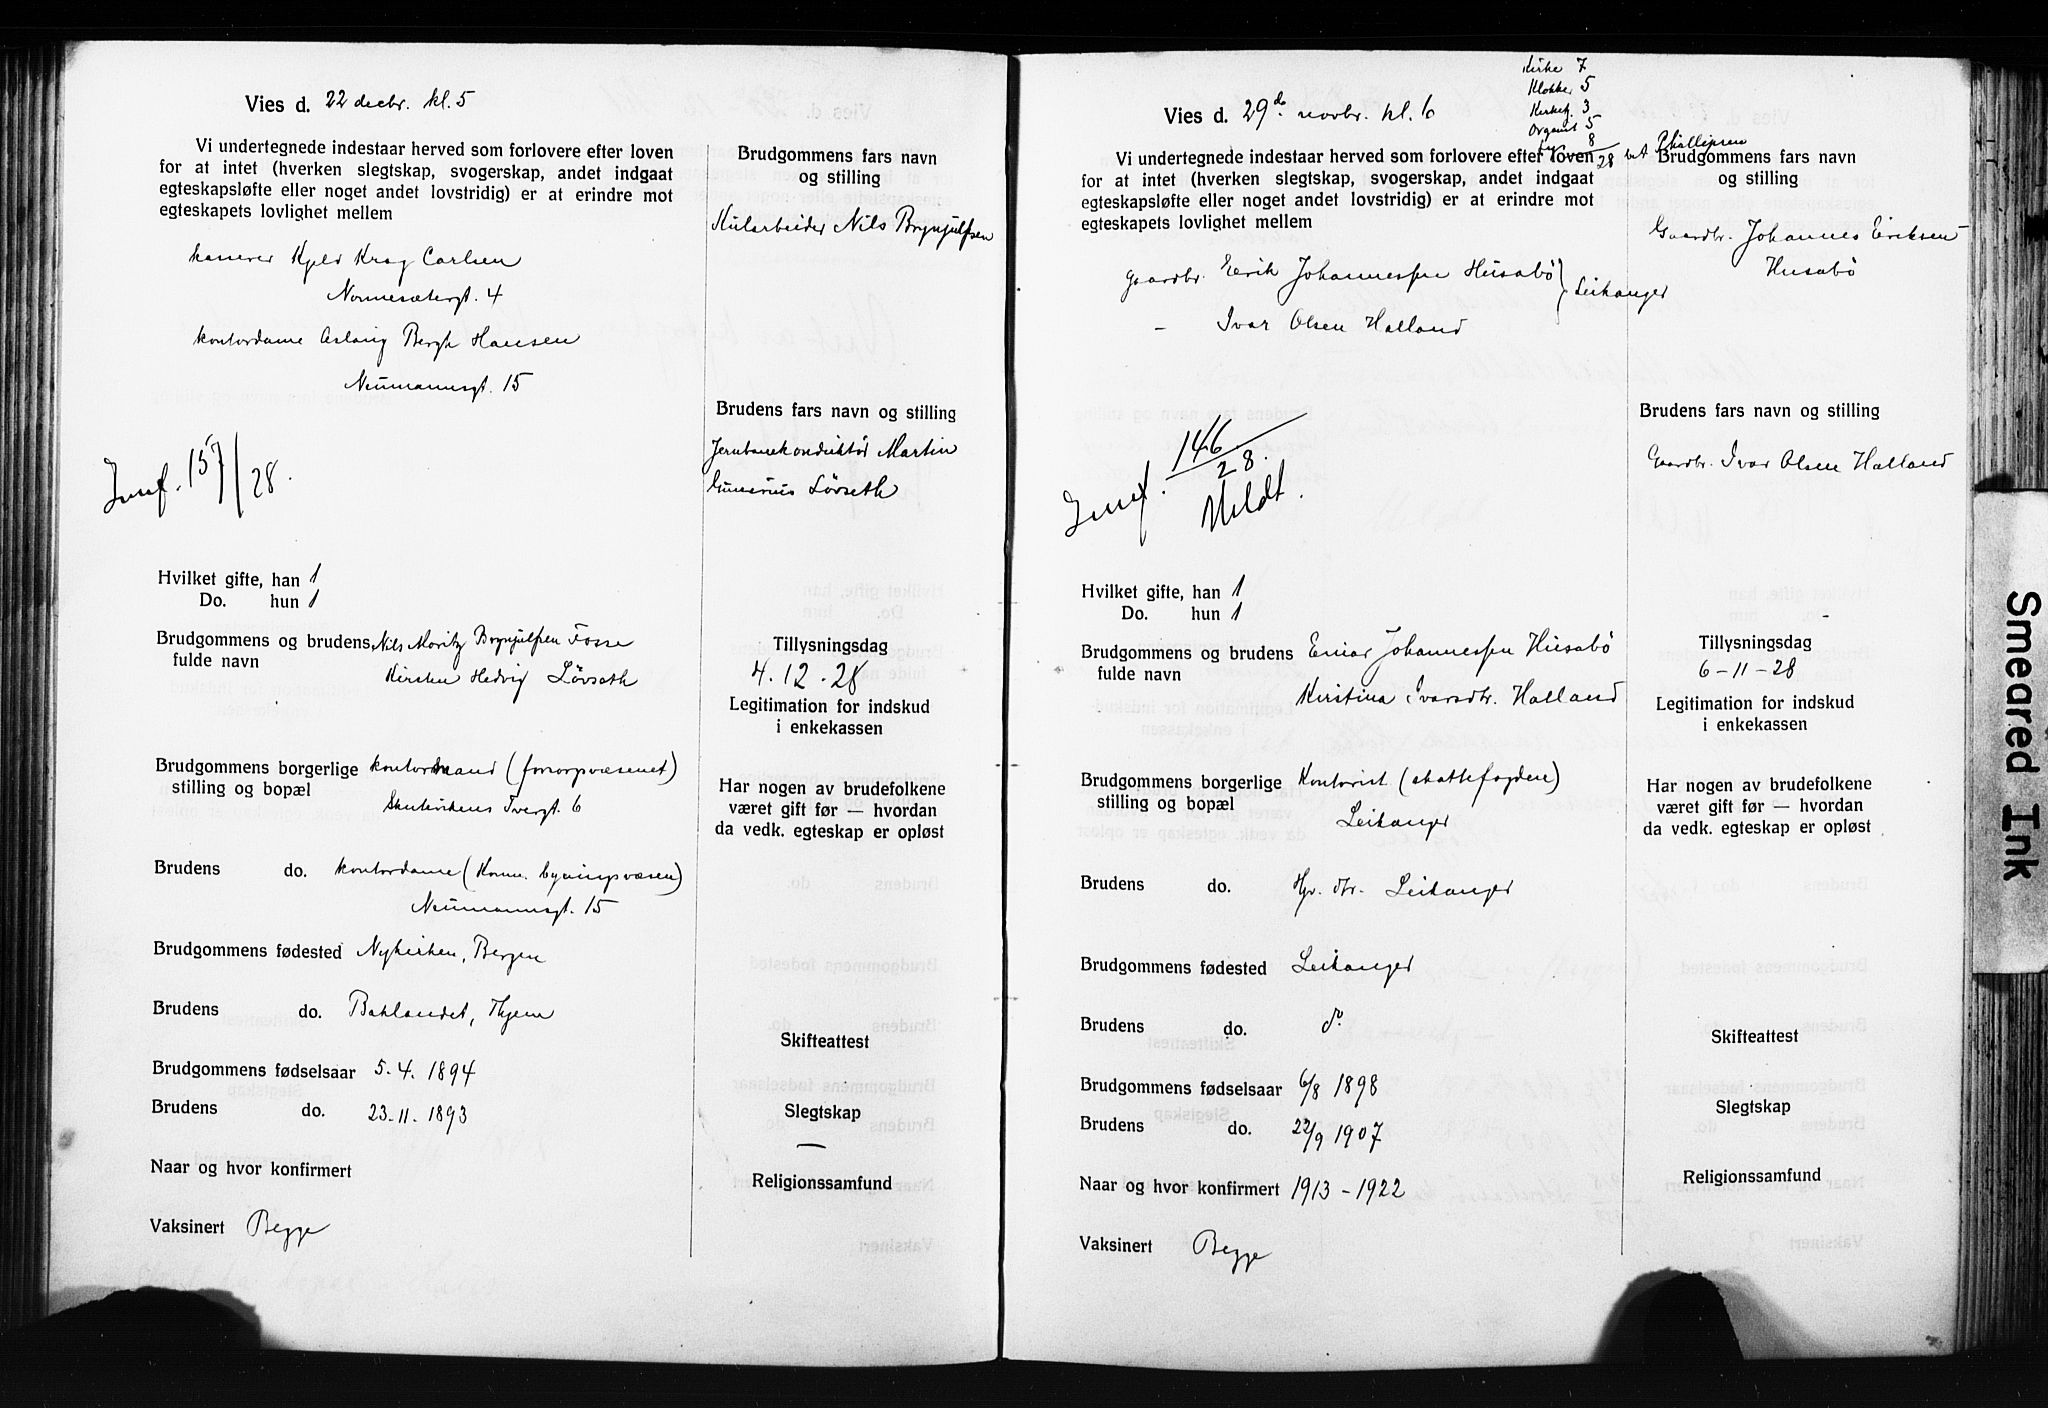 Vies d. 22 decbr. kl. 5
Vi undertegnede indestaar herved som forlovere efter loven
for at intet (hverken slegtskap, svogerskap, andet indgaat
egteskapsløfte eller noget andet lovstridig) er at erindre mot
egteskapets lovlighet mellem
kasserer Kjeld Krag Carlsen
Nonnesætergt. 4
kontordame Aslaug Bergh Hansen
Neumannsgt. 15
Innf. 157/28.
Hvilket gifte, han 1
Do. hun 1
Brudgommens og brudens Nils Moritz Brynjulfsen Fosse
fulde navn Kirsten Hedvig Løvseth
Brudgommens borgerlige kontormand (forsorgsvæsenet)
stilling og bopæl Skutevikens Tvergt. 6
Brudens do. kontordame (Komm. bygningsvæsen)
Neumannsgt. 15
Brudgommens fødested Nykirken, Bergen
Brudens do. Baklandet, Thjem
Brudgommens fødselsaar 5.4. 1894
Brudens do. 23.11. 1893
Naar og hvor konfirmert
Vaksinert Begge
Brudgommens fars navn
og stilling
Kularbeider Nils Brynjulfsen
Brudens fars navn og stilling
Jernbanekonduktør Martin
Gunerius Løvseth
Tillysningsdag
4.12.28
Legitimation for indskud
i enkekassen
Har nogen av brudefolkene
været gift før — hvordan
da vedk. egteskap er opløst
Skifteattest
Slegtskap
—
Religionssamfund
Vies d. 29de novbr. kl. 6
Kirke 7
Klokker 5
Kirketj. 3
Organist 5
8
28 bet Phillipsen
Vi undertegnede indestaar herved som forlovere efter loven
for at intet (hverken slegtskap, svogerskap, andet indgaat
egteskapsløfte eller noget andet lovstridig) er at erindre mot
egteskapets lovlighet mellem
Gaardbr. Eirik Johannessen Husabø } Leikanger
– Ivar Olsen Halland
Innf. 146/28.
Meldt.
Hvilket gifte, han 1
Do. hun 1
Brudgommens og brudens Einar Johannessen Husabø
fulde navn Kristina Ivarsdtr. Halland
Brudgommens borgerlige Kontorist (skattefogden)
stilling og bopæl Leikanger
Brudens do. Hjv. dtr. Leikanger
Brudgommens fødested Leikanger
Brudens do. do
Brudgommens fødselsaar 6/8 1898
Brudens do. 22/9 1907
Naar og hvor konfirmert 1913 – 1922
Vaksinert Begge
Brudgommens fars navn
og stilling
Gaardbr. Johannes Eriksen
Husabø
Brudens fars navn og stilling
Gaardbr. Ivar Olsen Halland
Tillysningsdag
6–11–28
Legitimation for indskud
i enkekassen
Har nogen av brudefolkene
været gift før — hvordan
da vedk. egteskap er opløst
Skifteattest
Slegtskap
Religionssamfund
Smeared Ink